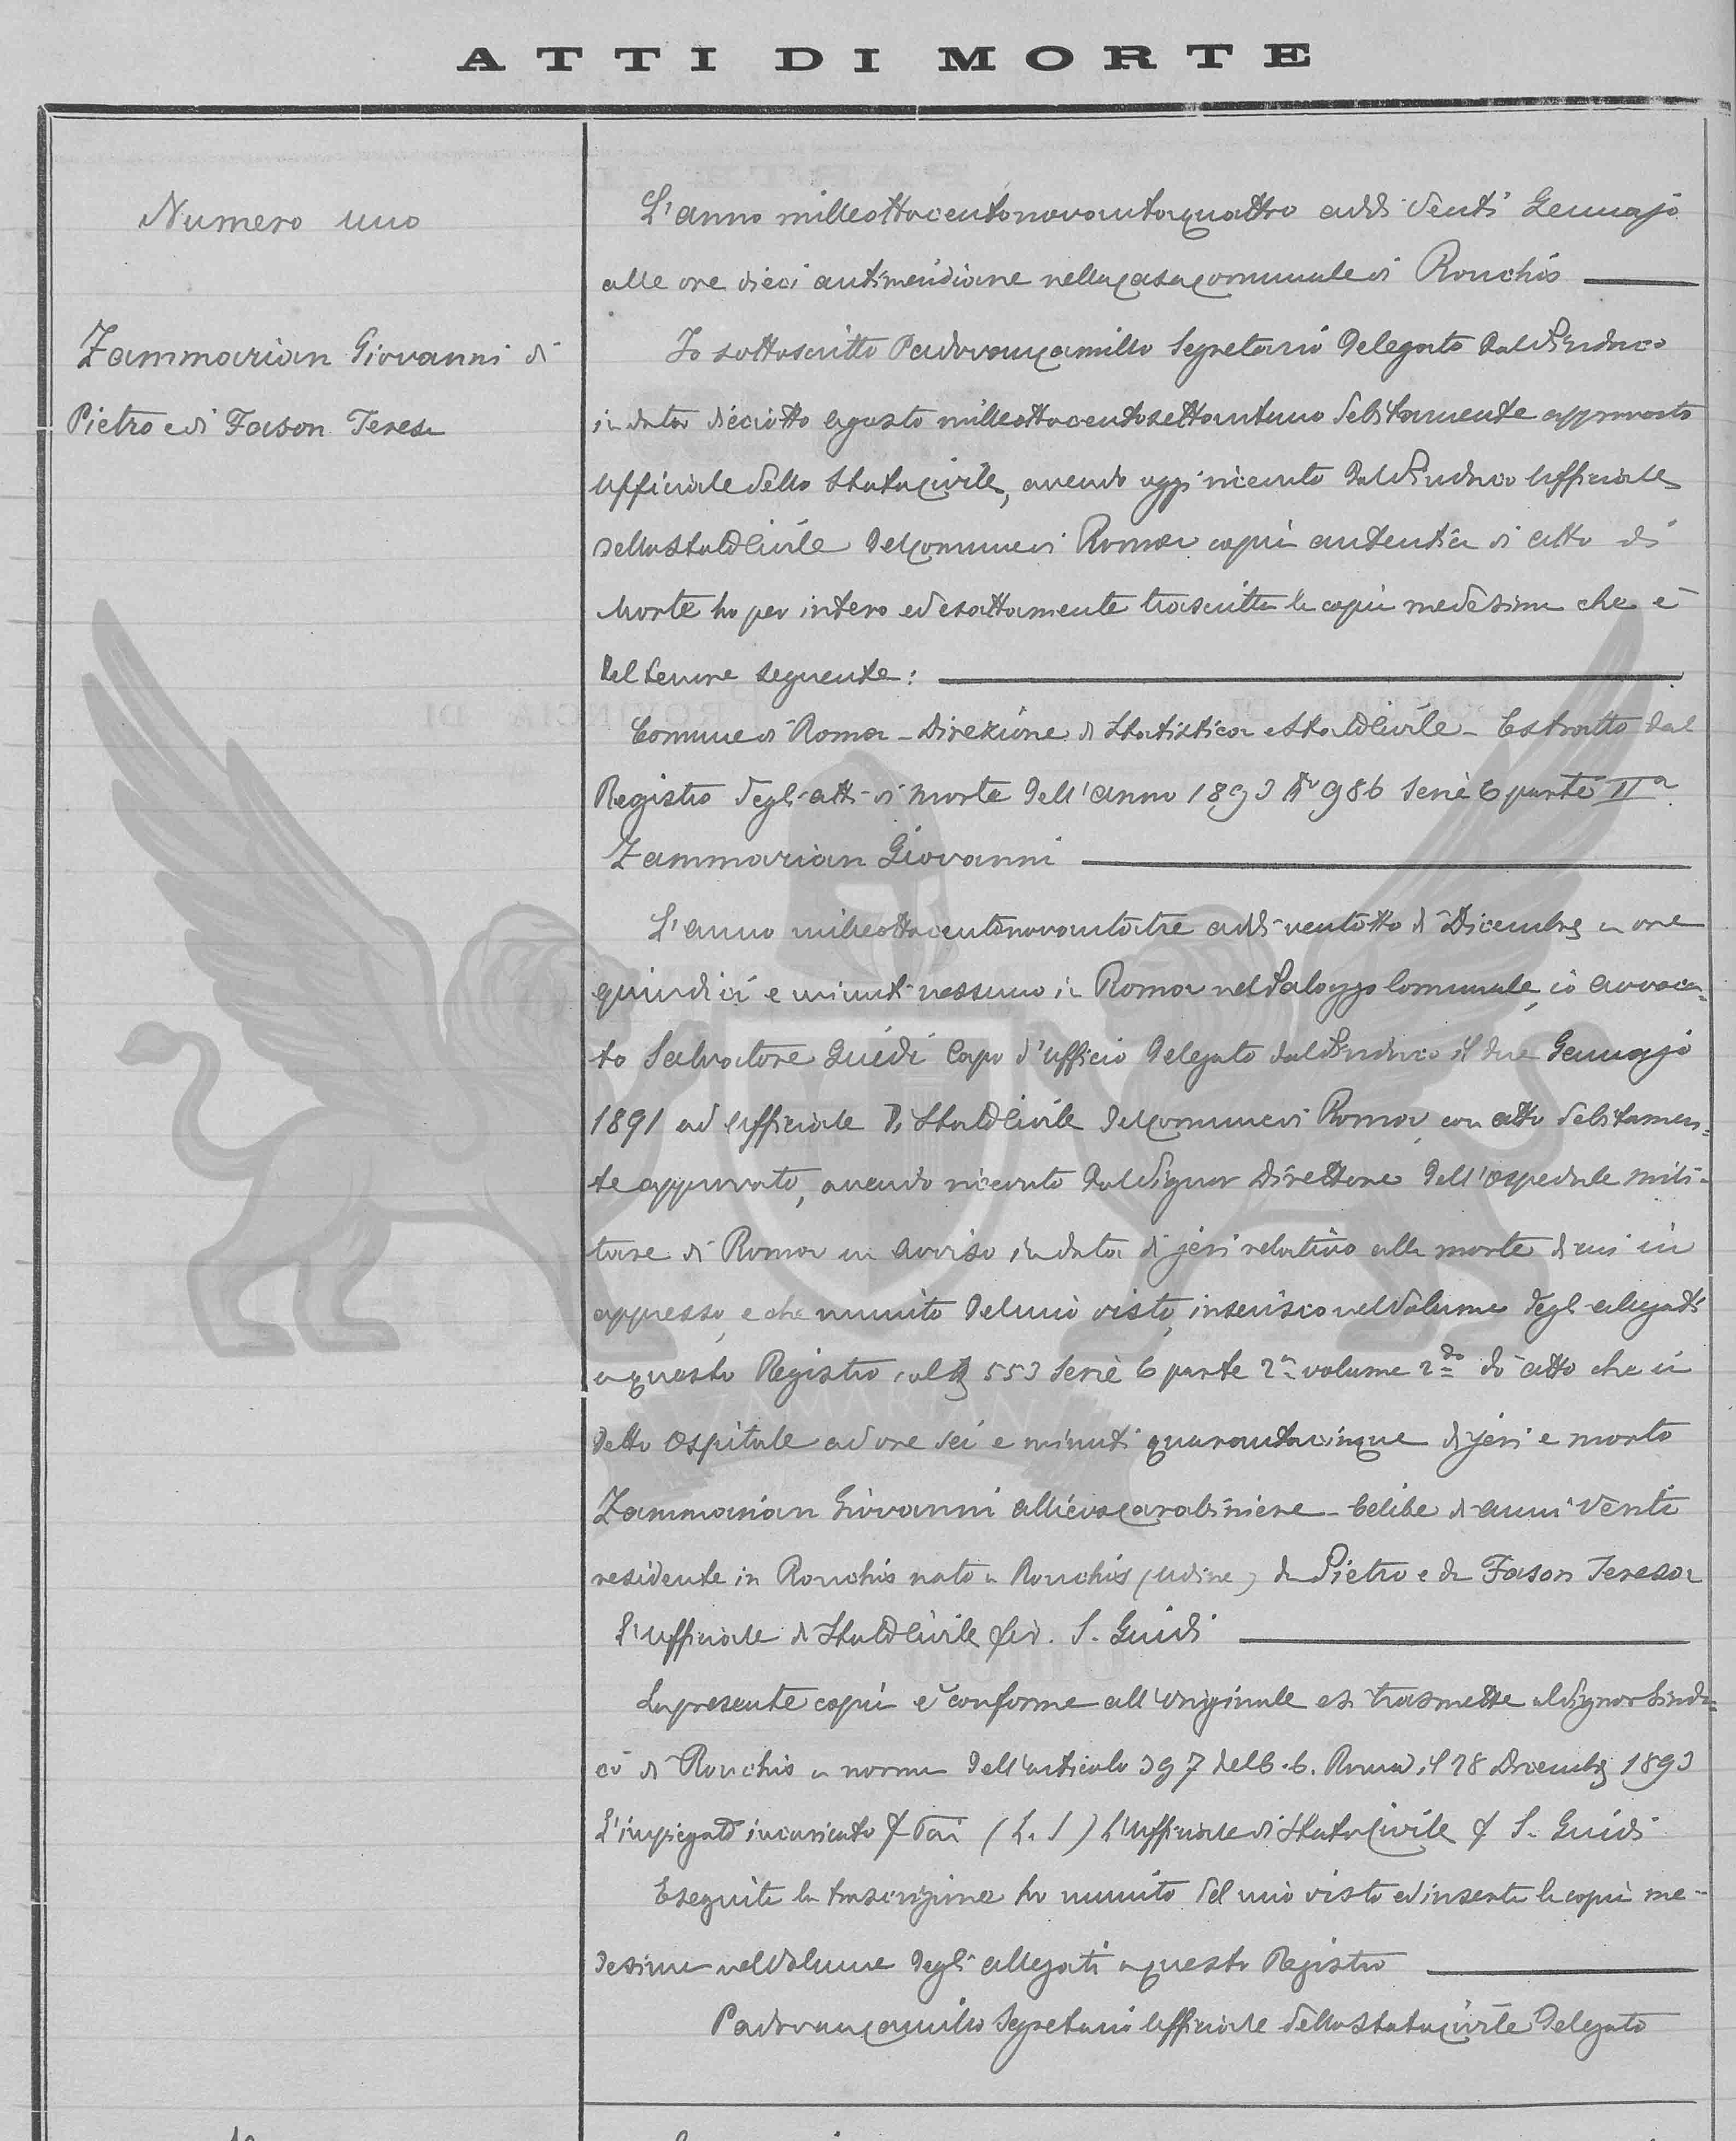 ATTI DI MORTE
Numero uno
Zammarian Giovanni di
Pietro e di Fason Teresa
L'anno milleottocentonovantaquattro addi venti Gennajo
alle ore dieci antimeridiane nella casa comunale di Ronchis
Io sottoscritto Padovan Camillo Segretario Delegato dal Sindaco
in data dieciotto agosto milleottocentosettantuno debitamente approvato
Ufficiale dello Stato Civile, avendo oggi ricevuto dal Sindaco Ufficiale
dello Stato Civile del comune di Roma copia autentica di atto di
Morte ho per intero ed esattamente trascritta la copia medesima che è
del tenore seguente:
Comune di Roma - Direzione di Statistica e Stato Civile - Estratto dal
Registro degli atti di morte dell'anno 1893 N° 986 Serie 6 parte IIa
Zammarian Giovanni
L'anno milleottocentonovantatre addi ventotto di Dicembre a ore
quindici e minuti nessuno in Roma nel Palazzo Comunale, io avvoca=
to Salvatore Guidi Capo d'ufficio delegato dal Sindaco il due Gennajo
1891 ad Ufficiale di Stato Civile del comune di Roma, con atto debitamen=
te approvato, avendo ricevuto dal Signor Direttore dell'ospedale mili=
tare di Roma un avviso in data di jeri relativo alla morte di cui in
appresso, e che munito del mio visto, inserisco nel volume degli allegati
a questo Registro, al N 553 Serie 6 parte 2a volume 2do dò atto che in
detto Ospitale ad ore sei e minuti quarantacinque di jeri è morto
Zammarian Giovanni allievo carabiniere - Celibe di anni venti
residente in Ronchis nato a Ronchis (Udine) da Pietro e da Fason Teresa
L'ufficiale di Stato Civile fir. S. Guidi
La presente copia è conforme all'originale e si trasmette al Signor Sinda=
co di Ronchis a norma dell'articolo 397 del C.C. Roma, il 28 Dicembre 1893
L'impiegato incaricato f (L. S) L'ufficiale di Stato Civile f S. Guidi
Eseguita la trascrizione ho munito del mio visto ed inserta la copia me=
desima nel volume degli allegati a questo Registro
Padovan Camillo Segretario Ufficiale dello Stato Civile Delegato